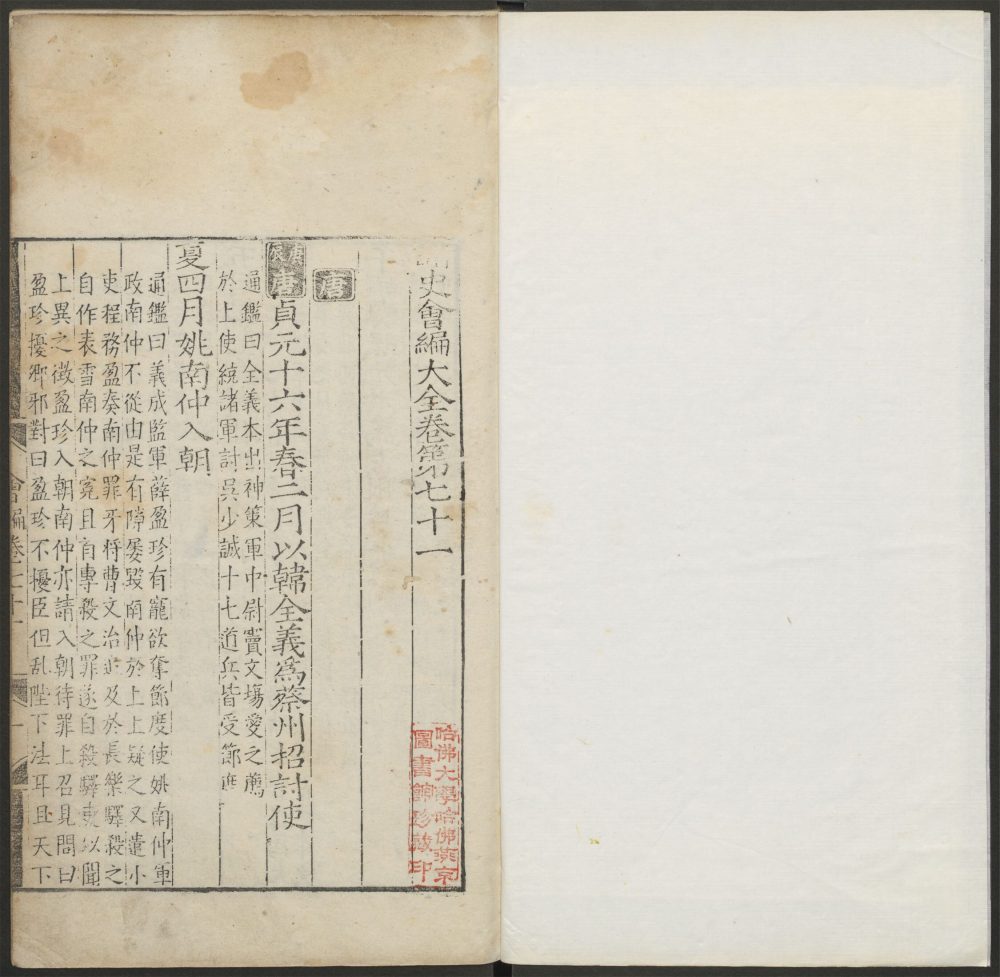 史會編大全卷第七十一
哈佛大學哈佛燕京
圖書館珍藏印
唐
庚辰
唐貞元十六年春二月以韓全義爲蔡州招討使
通鑑曰全義本出神策軍中尉竇文塲愛之薦
於上使統諸軍討吳少誠十七道兵皆受節度
夏四月姚南仲入朝
通鑑曰義成監軍薛盈珍有寵欲奪節度使姚南仲軍
政南仲不從由是有隙屡毀南仲於上上疑之又遣小
吏程務盈奏南仲罪牙將曹文洽追及於長樂驛殺之
自作表雪南仲之寃且首專殺之罪遂自殺驛吏以聞
上異之徴盈珍入朝南仲亦請入朝待罪上召見問曰
盈珍擾卿邪對曰盈珍不擾臣但乱陛下法耳且天下
會編卷七十一
一